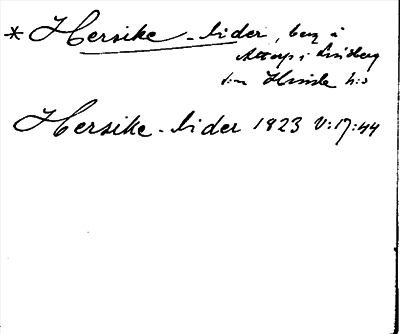 * Hersike-lider, berg å
Attorp i Lindberg
s:n Himle h:d
Hersike-lider 1823 V:17:44